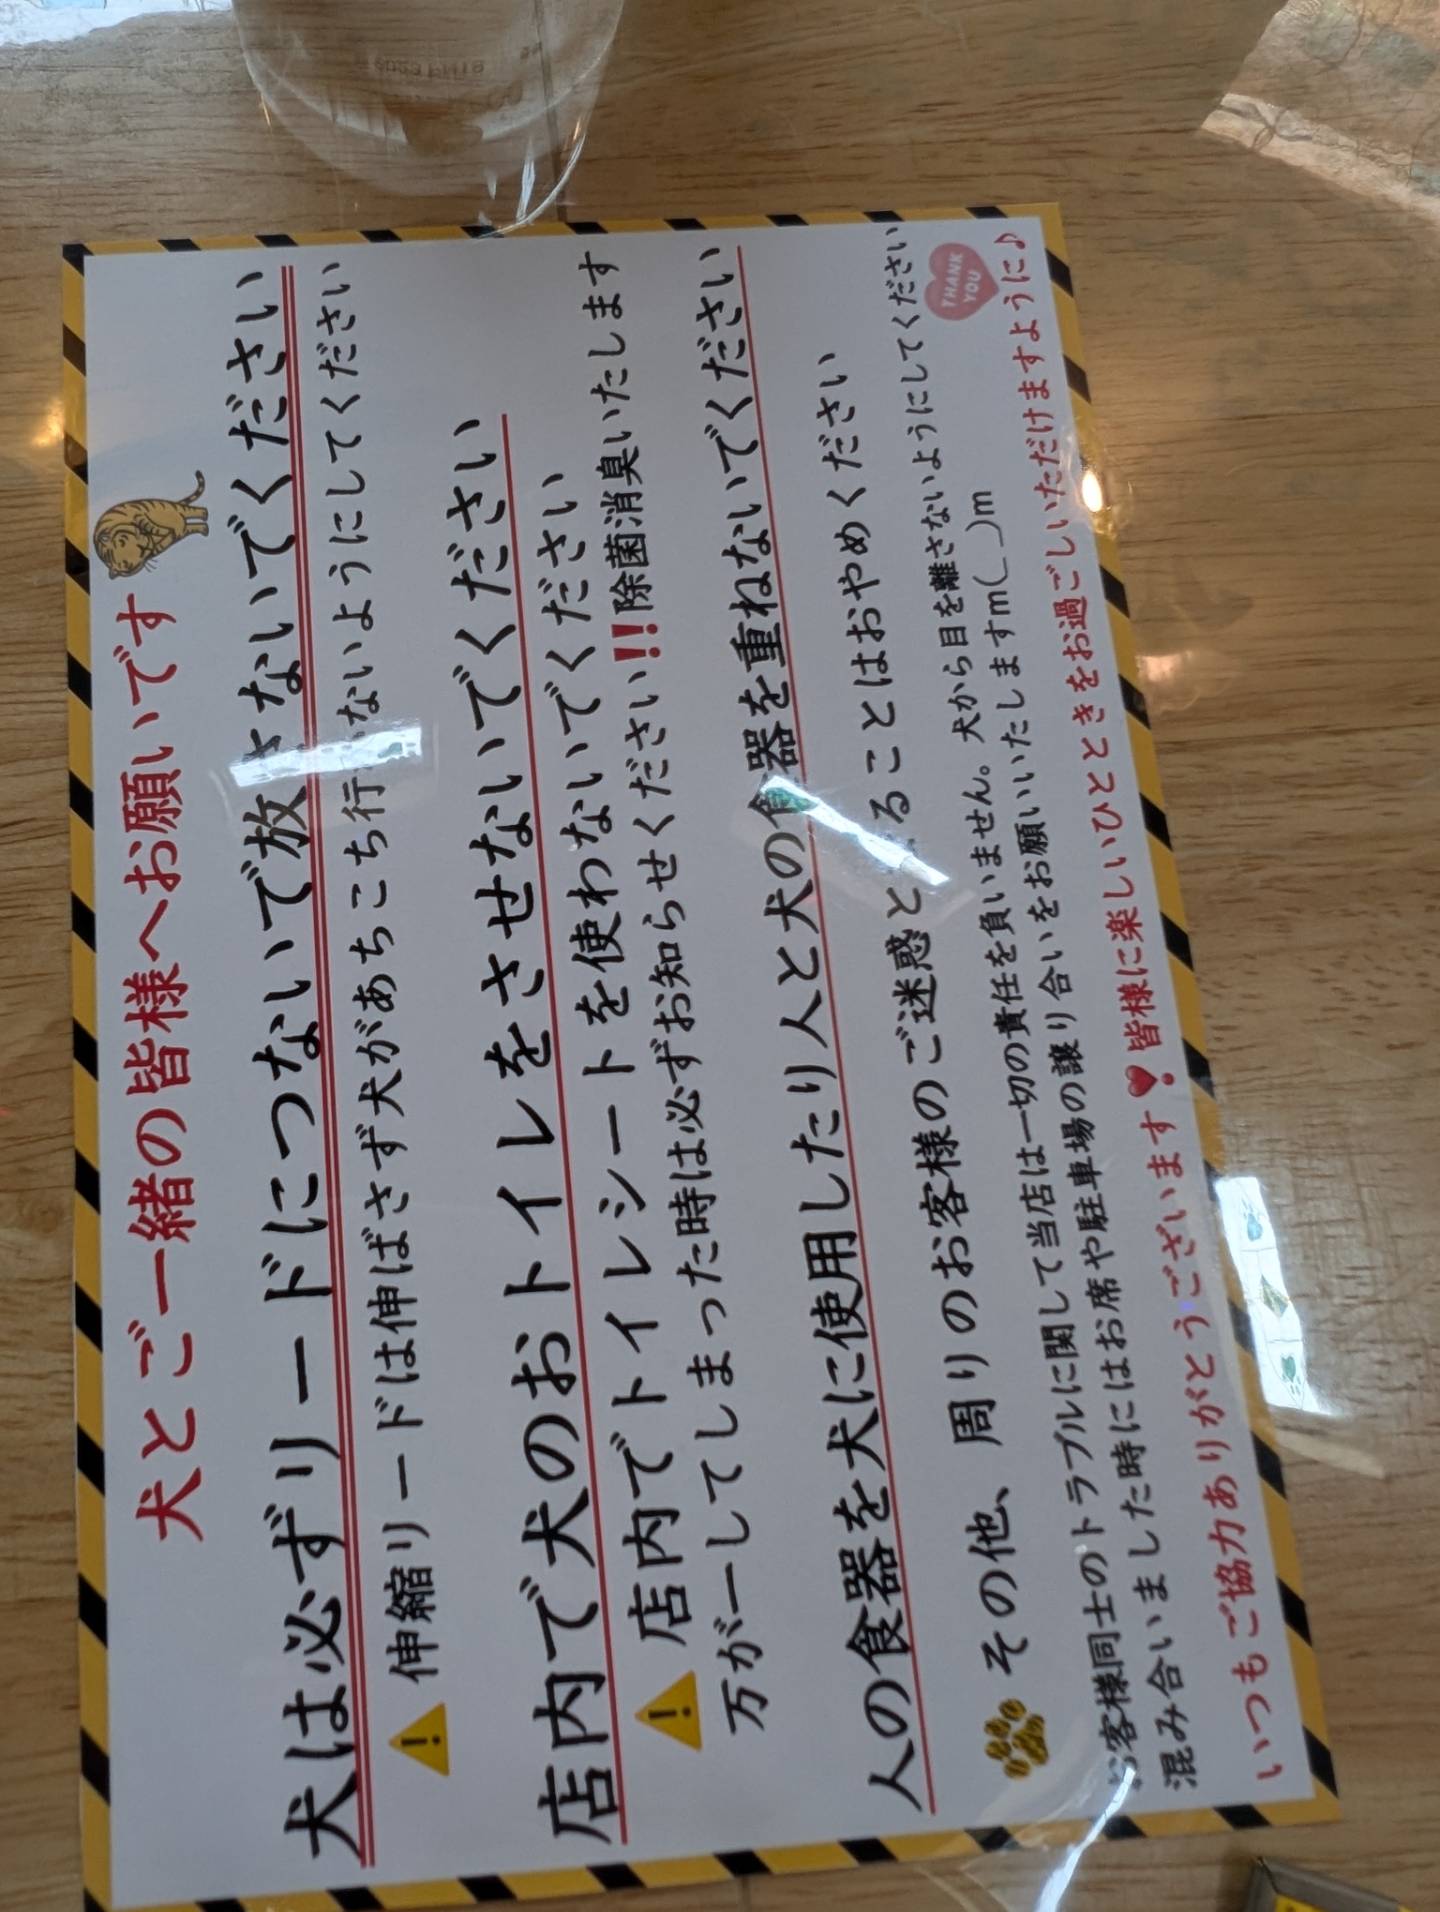 犬とご一緒の皆様へお願いです
犬は必ずリードにつないで放さないでください
伸縮リードは伸ばさず犬があちこち行かないようにしてください
店内で犬のおトイレをさせないでください
店内でトイレシートを使わないでください
万が一してしまった時は必ずお知らせください!!除菌消臭いたします
人の食器を犬に使用したり人と犬の食器を重ねないでください
その他、周りのお客様のご迷惑と ることはおやめください
お客様同士のトラブルに関して当店は一切の責任を負いません。犬から目を離さないようにしてください
混み合いました時にはお席や駐車場の譲り合いをお願いいたしますm(_ _)m
THANK YOU
いつもご協力ありがとうございます❣皆様に楽しいひとときをお過ごしいただけますように♪